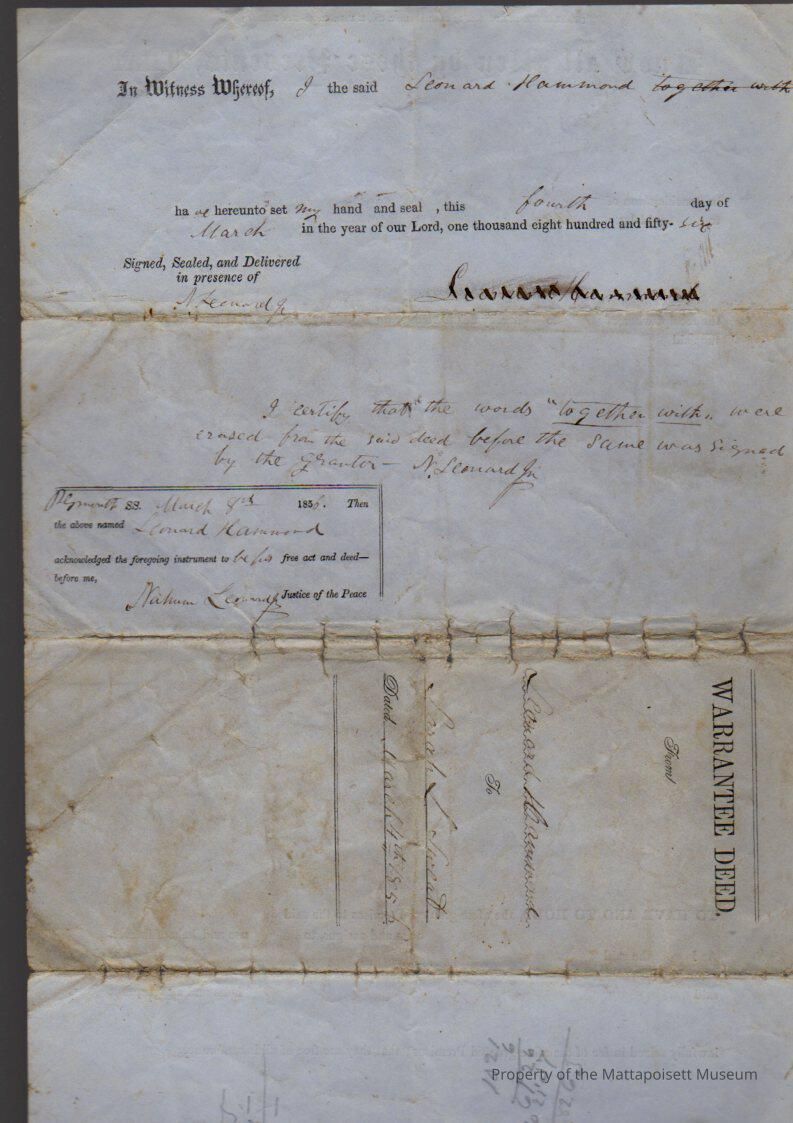 In Witness Whereof, I the said Leonard Hammond together with
ha ve hereunto set my hand and seal , this fourth day of
March in the year of our Lord, one thousand eight hundred and fifty- six
Signed, Sealed, and Delivered
in presence of
N. Leonard Jr
I certify that the words "together with" were
erased from the said deed before the same was signed
by the grantor - N. Leonard Jr
Plymouth SS. March 1856. Then
the above named Leonard Hammond
acknowledged the foregoing instrument to be his free act and deed—
before me,
Nahum Leonard Jr Justice of the Peace
WARRANTEE DEED.
From
Leonard Hammond
To
Sarah L.
Dated March 4th 1856
Property of the Mattapoisett Museum